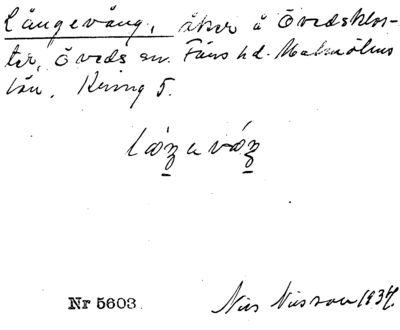 Långevång, åker å Övedsklos-
ter, Öveds sn. Färs hd. Malmöhus
län. Kring 5.
Nr 5603
Nils Nilsson 1937.